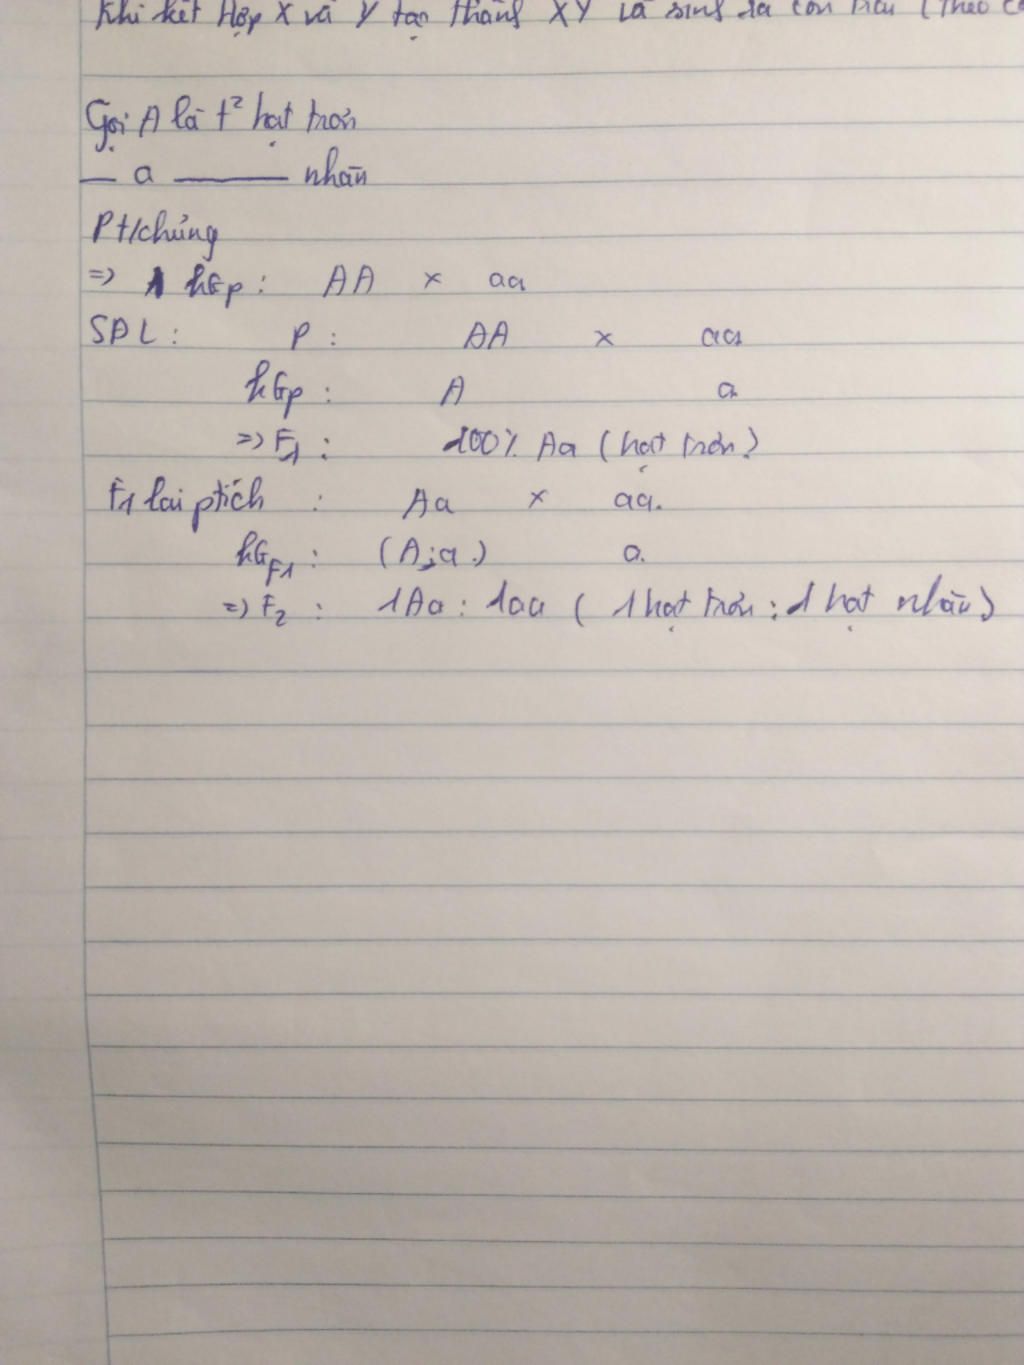 Khi kết Hợp X và Y tạo thành XY là sinh ra con trai (theo
Gọi A là t² hạt trơn
— a —— nhăn
Pt/chủng
=> kGp : AA × aa
SĐL : P : AA × aa
kGp : A a
=> F1 : 100% Aa (hạt trơn)
F1 lai ptích : Aa × aa.
kGF1 : (A;a) a
=> F2 : 1Aa : 1aa ( 1 hạt trơn : 1 hạt nhăn)